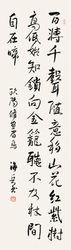 百囀千聲隨意移山花紅紫樹
高低始知鎖向金籠聽不及林間
自在啼 歐陽修畫眉鳥